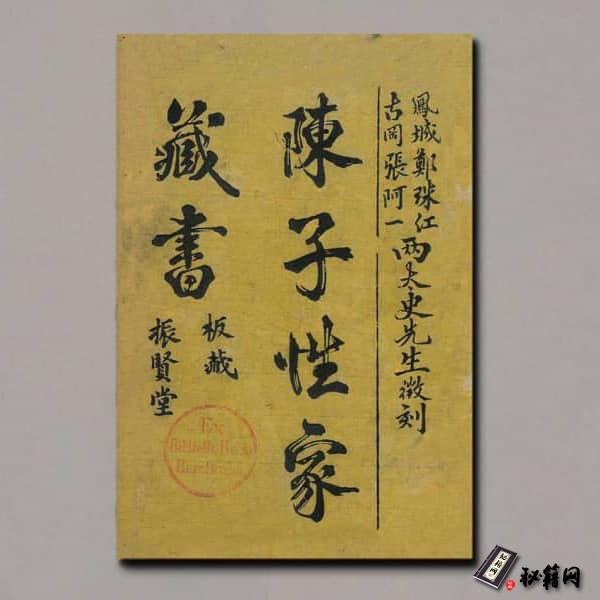 鳳城鄭珠江
古岡張阿一
两太史先生徵刻
陳子性家
藏書
板藏
振賢堂
Ex
秘籍网